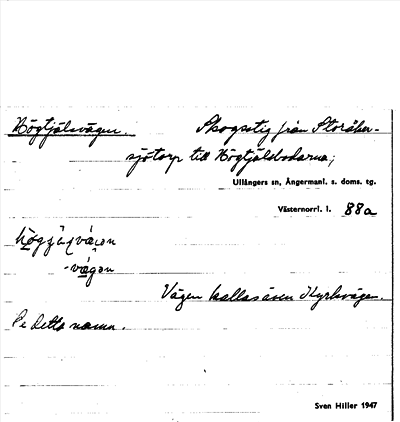 Högtjälsvägen. Skogsstig från Storåker-
sjötorp till Högtjälsbodarna;
Ullångers sn, Ångermanl. s. doms. tg.
Västernorrl. l. 88a
-vä́gən
Vägen kallas även Kyrkvägen.
Se detta namn.
Sven Hiller 1947